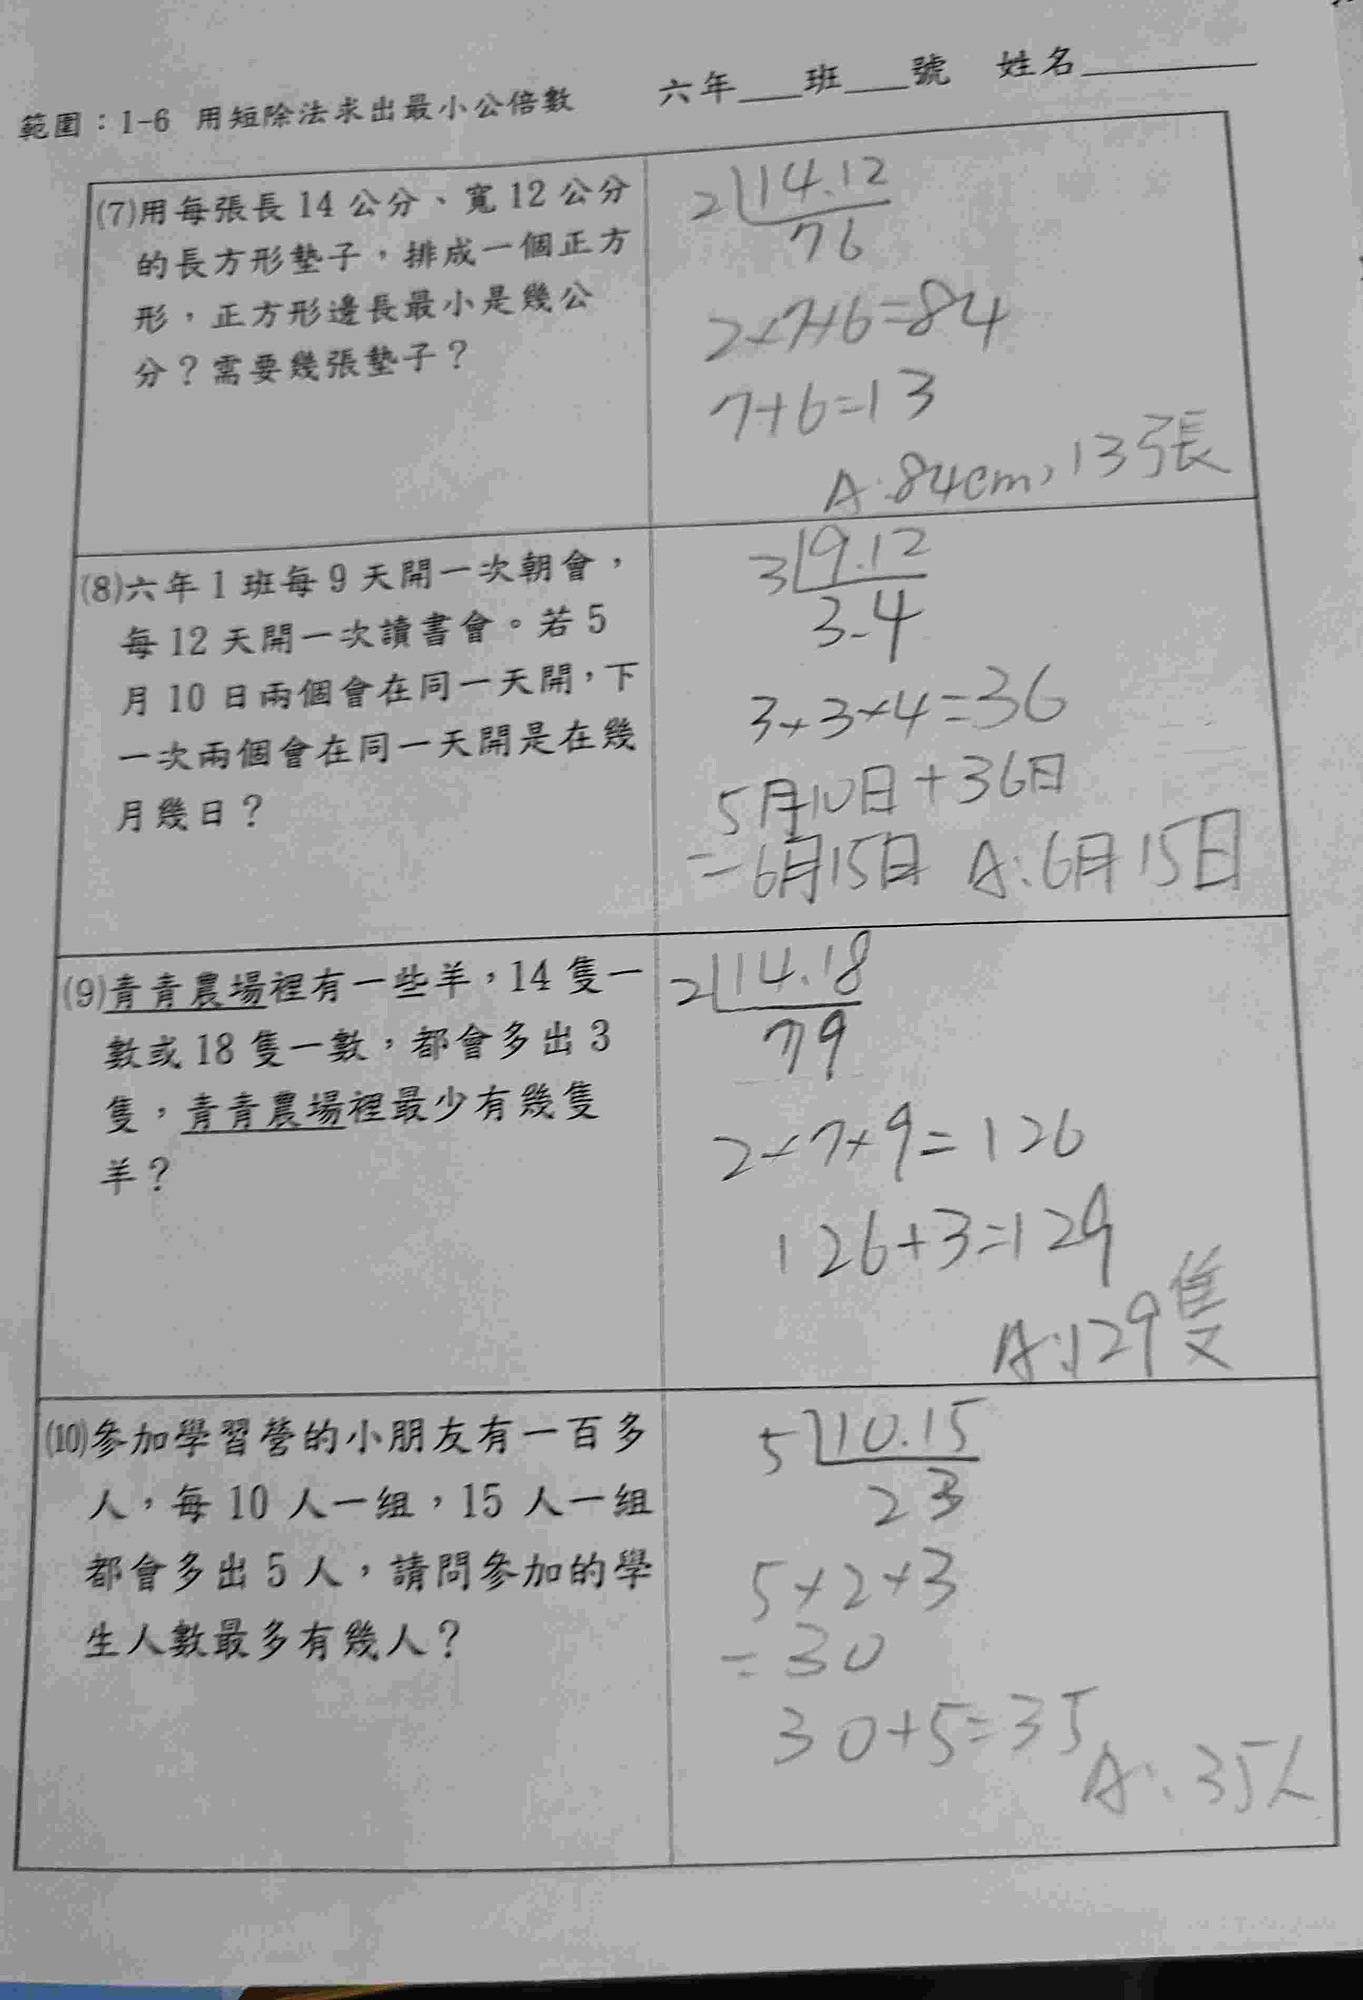 範圍：1-6 用短除法求出最小公倍數 六年___班___號 姓名________
(7)用每張長 14 公分、寬 12 公分
的長方形墊子，排成一個正方
形，正方形邊長最小是幾公
分？需要幾張墊子？
2 14.12
7 6
2×7×6=84
7+6=13
A:84cm,13張
(8)六年 1 班每 9 天開一次朝會，
每 12 天開一次讀書會。若 5
月 10 日兩個會在同一天開，下
一次兩個會在同一天開是在幾
月幾日？
3 9.12
3-4
3×3×4=36
5月10日+36日
=6月15日 A:6月15日
(9)青青農場裡有一些羊，14 隻一
數或 18 隻一數，都會多出 3
隻，青青農場裡最少有幾隻
羊？
2 14.18
7 9
2×7×9=126
126+3=129
A:129隻
(10)參加學習營的小朋友有一百多
人，每 10 人一組，15 人一組
都會多出 5 人，請問參加的學
生人數最多有幾人？
5 10.15
2 3
5×2×3
=30
30+5=35
A:35人